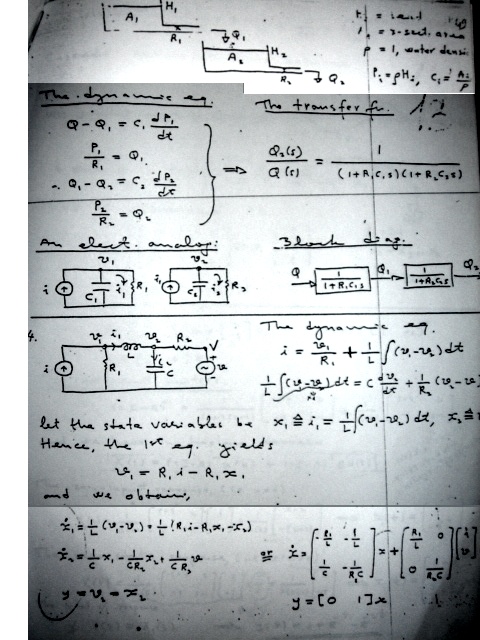 A₁ H₁
R₁ Q₁
A₂ H₂
R₂ Q₂
ρ = 1, water
Pᵢ = ρHᵢ, Cᵢ = Aᵢ/ρ
The dynamic eq.
Q − Q₁ = C₁ dP₁/dt
P₁/R₁ = Q₁
Q₁ − Q₂ = C₂ dP₂/dt
P₂/R₂ = Q₂
The transfer fn.
⇒ Q₂(s)/Q(s) = 1/((1+R₁C₁s)(1+R₂C₂s))
An elect. analog:
v₁ v₂
i C₁ i₁ R₁ i₁ C₂ i₂ R₂
Block diag:
Q 1/(1+R₁C₁s) Q₁ 1/(1+R₂C₂s) Q₂
4.
v₁ i₁ v₂ R₂ V
i R₁ L C v
The dynamic eq.
i = v₁/R₁ + 1/L ∫(v₁−v₂)dt
1/L ∫(v₁−v₂)dt = C dv₂/dt + 1/R₂ (v₂−v
let the state variables be x₁ ≜ i₁ = 1/L ∫(v₁−v₂)dt, x₂ ≜
Hence, the 1st eq. yields
v₁ = R₁i − R₁x₁
and we obtain,
ẋ₁ = 1/L (v₁−v₂) = 1/L (R₁i − R₁x₁ − x₂)
ẋ₂ = 1/C x₁ − 1/CR₂ x₂ + 1/CR₂ v
or ẋ = [−R₁/L −1/L; 1/C −1/R₂C] x + [R₁/L 0; 0 1/R₂C] [i; v]
y = v₂ = x₂
y = [0 1]x